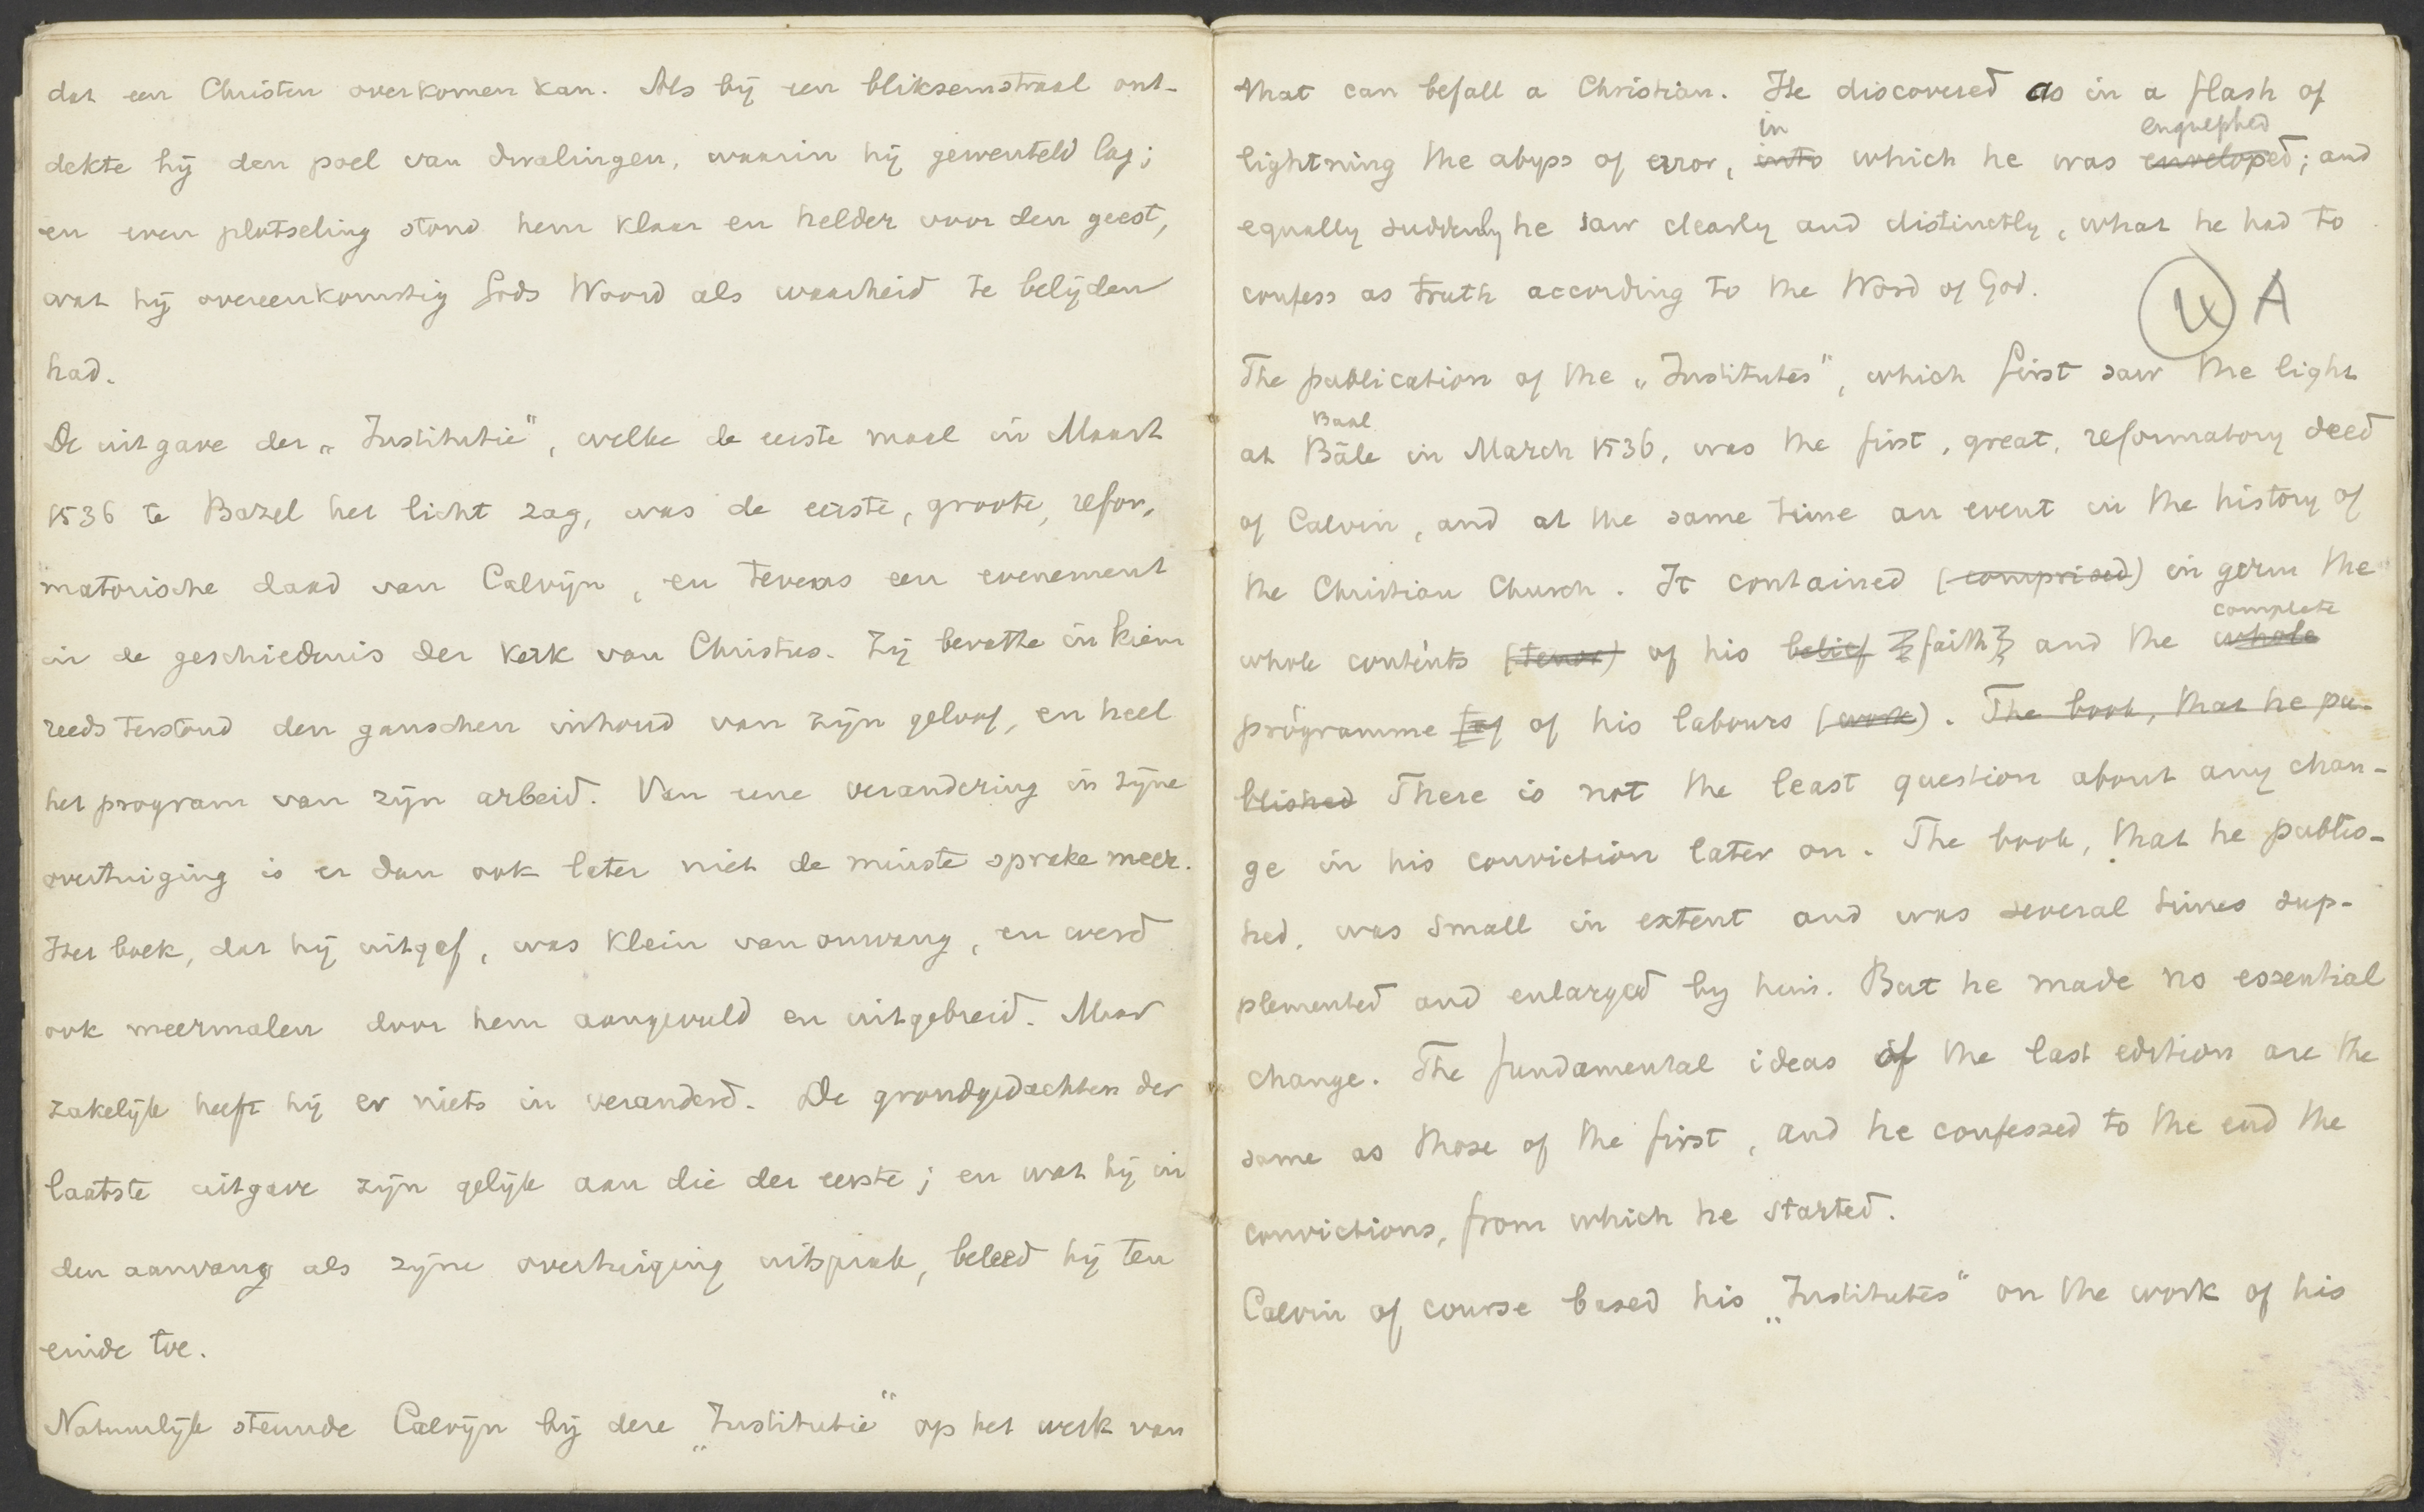 dat een Christen overkomen kan. Als bij een bliksemstraal ont-
dekte hij den poel van dwalingen, waarin hij gewenteld lag;
en even plotseling stond hem klaar en helder voor den geest,
wat hij overeenkomstig Gods Woord als waarheid te belijden
had.
De uitgave der „Institutie", welke de eerste maal in Maart
1536 te Bazel het licht zag, was de eerste, groote, refor-
matorische daad van Calvijn, en tevens een evenement
in de geschiedenis der Kerk van Christus. Zij bevatte in kiem
reeds terstond den ganschen inhoud van zijn geloof, en heel
het program van zijn arbeid. Van eene verandering in zijne
overtuiging is er dan ook later niet de minste sprake meer.
Het boek, dat hij uitgaf, was klein van omvang, en werd
ook meermalen door hem aangevuld en uitgebreid. Maar
zakelijk heeft hij er niets in veranderd. De grondgedachten der
laatste uitgave zijn gelijk aan die der eerste; en wat hij in
den aanvang als zijne overtuiging uitsprak, beleed hij ten
einde toe.
Natuurlijk steunde Calvijn bij deze „Institutie" op het werk van
that can befall a Christian. He discovered as in a flash of
in engulphed
lightning the abyss of error, into which he was enveloped; and
equally suddenly he saw clearly and distinctly, what he had to
confess as truth according to the Word of God.
A
The publication of the „Institutes", which first saw the light
Baal
at Bâle in March 1536, was the first, great, reformatory deed
of Calvin, and at the same time an event in the history of
the Christian Church. It contained (comprised) in germ the
complete
whole contents (tenor) of his belief faith and the whole
programme of of his labours (work). The book, that he pu-
blished There is not the least question about any chan-
ge in his conviction later on. The book, that he publis-
hed, was small in extent and was several times sup-
plemented and enlarged by him. But he made no essential
change. The fundamental ideas of the last edition are the
same as those of the first, and he confessed to the end the
convictions, from which he started.
Calvin of course based his „Institutes" on the work of his